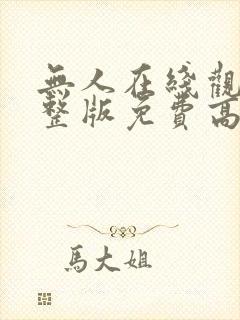 無人在綫觀
整版免費高
馬大姐